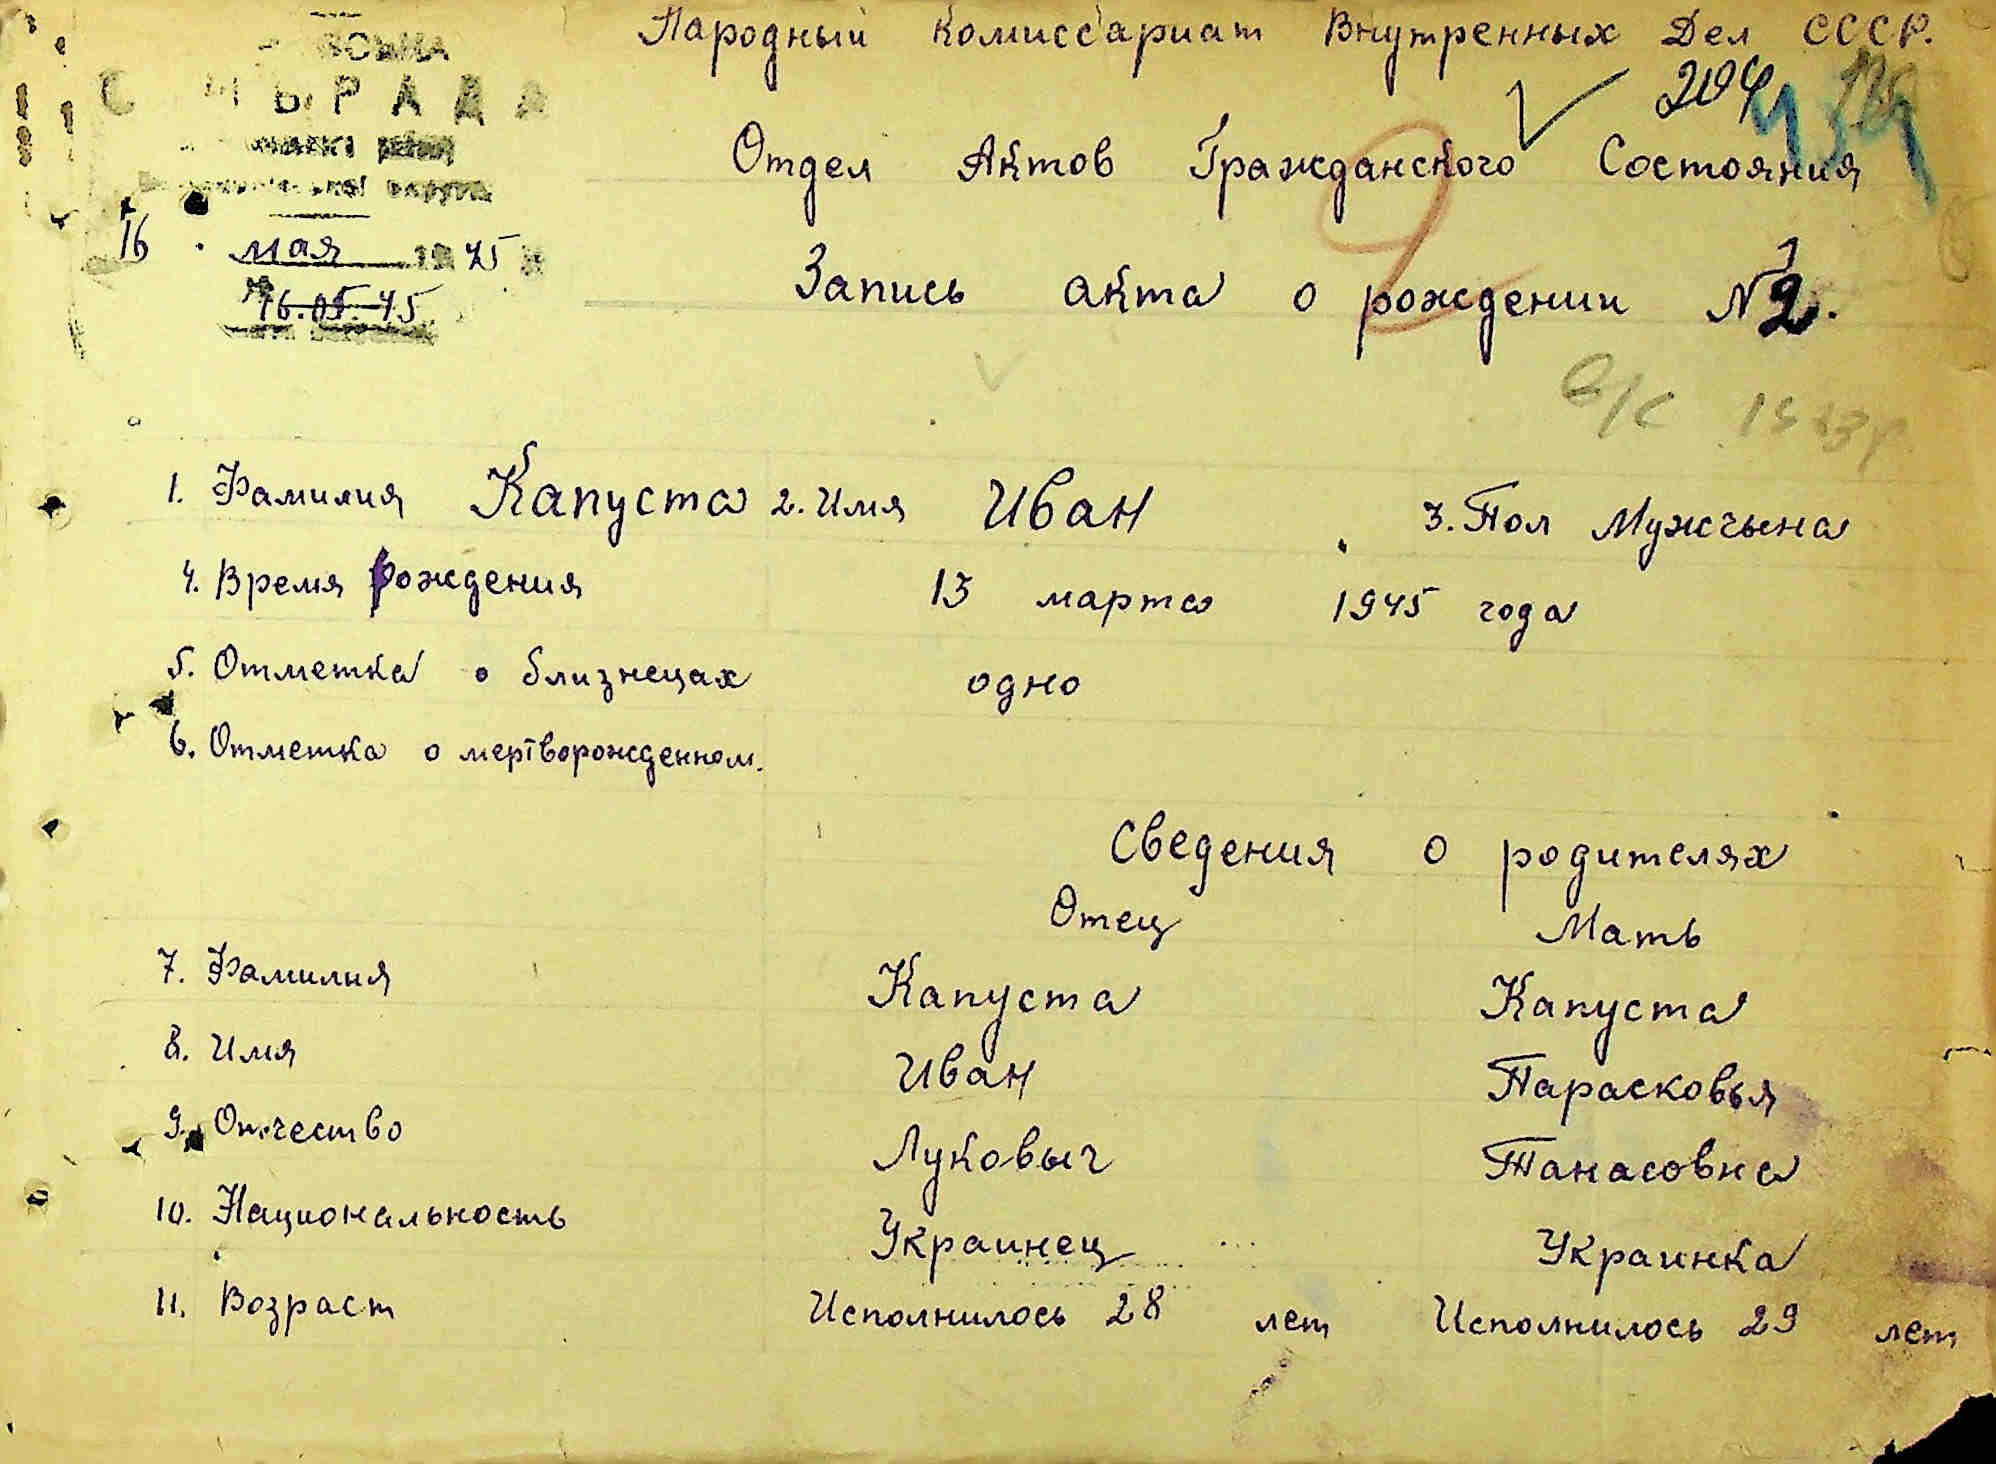 Народный Комиссариат Внутренных Дел СССР.
204
Отдел Актов Гражданского Состояния
16 мая 1945
16.05.45
Запись акта о рождении № 2.
1. Фамилия Капуста 2. Имя Иван 3. Пол Мужчына
4. Время рождения 13 марта 1945 года
5. Отметка о близнецах одно
6. Отметка о мертворожденном.
Сведения о родителях
Отец Мать
7. Фамилия Капуста Капуста
8. Имя Иван Парасковья
9. Отчество Луковыч Танасовна
10. Национальность Украинец Украинка
11. Возраст Исполнилось 28 лет Исполнилось 29 лет